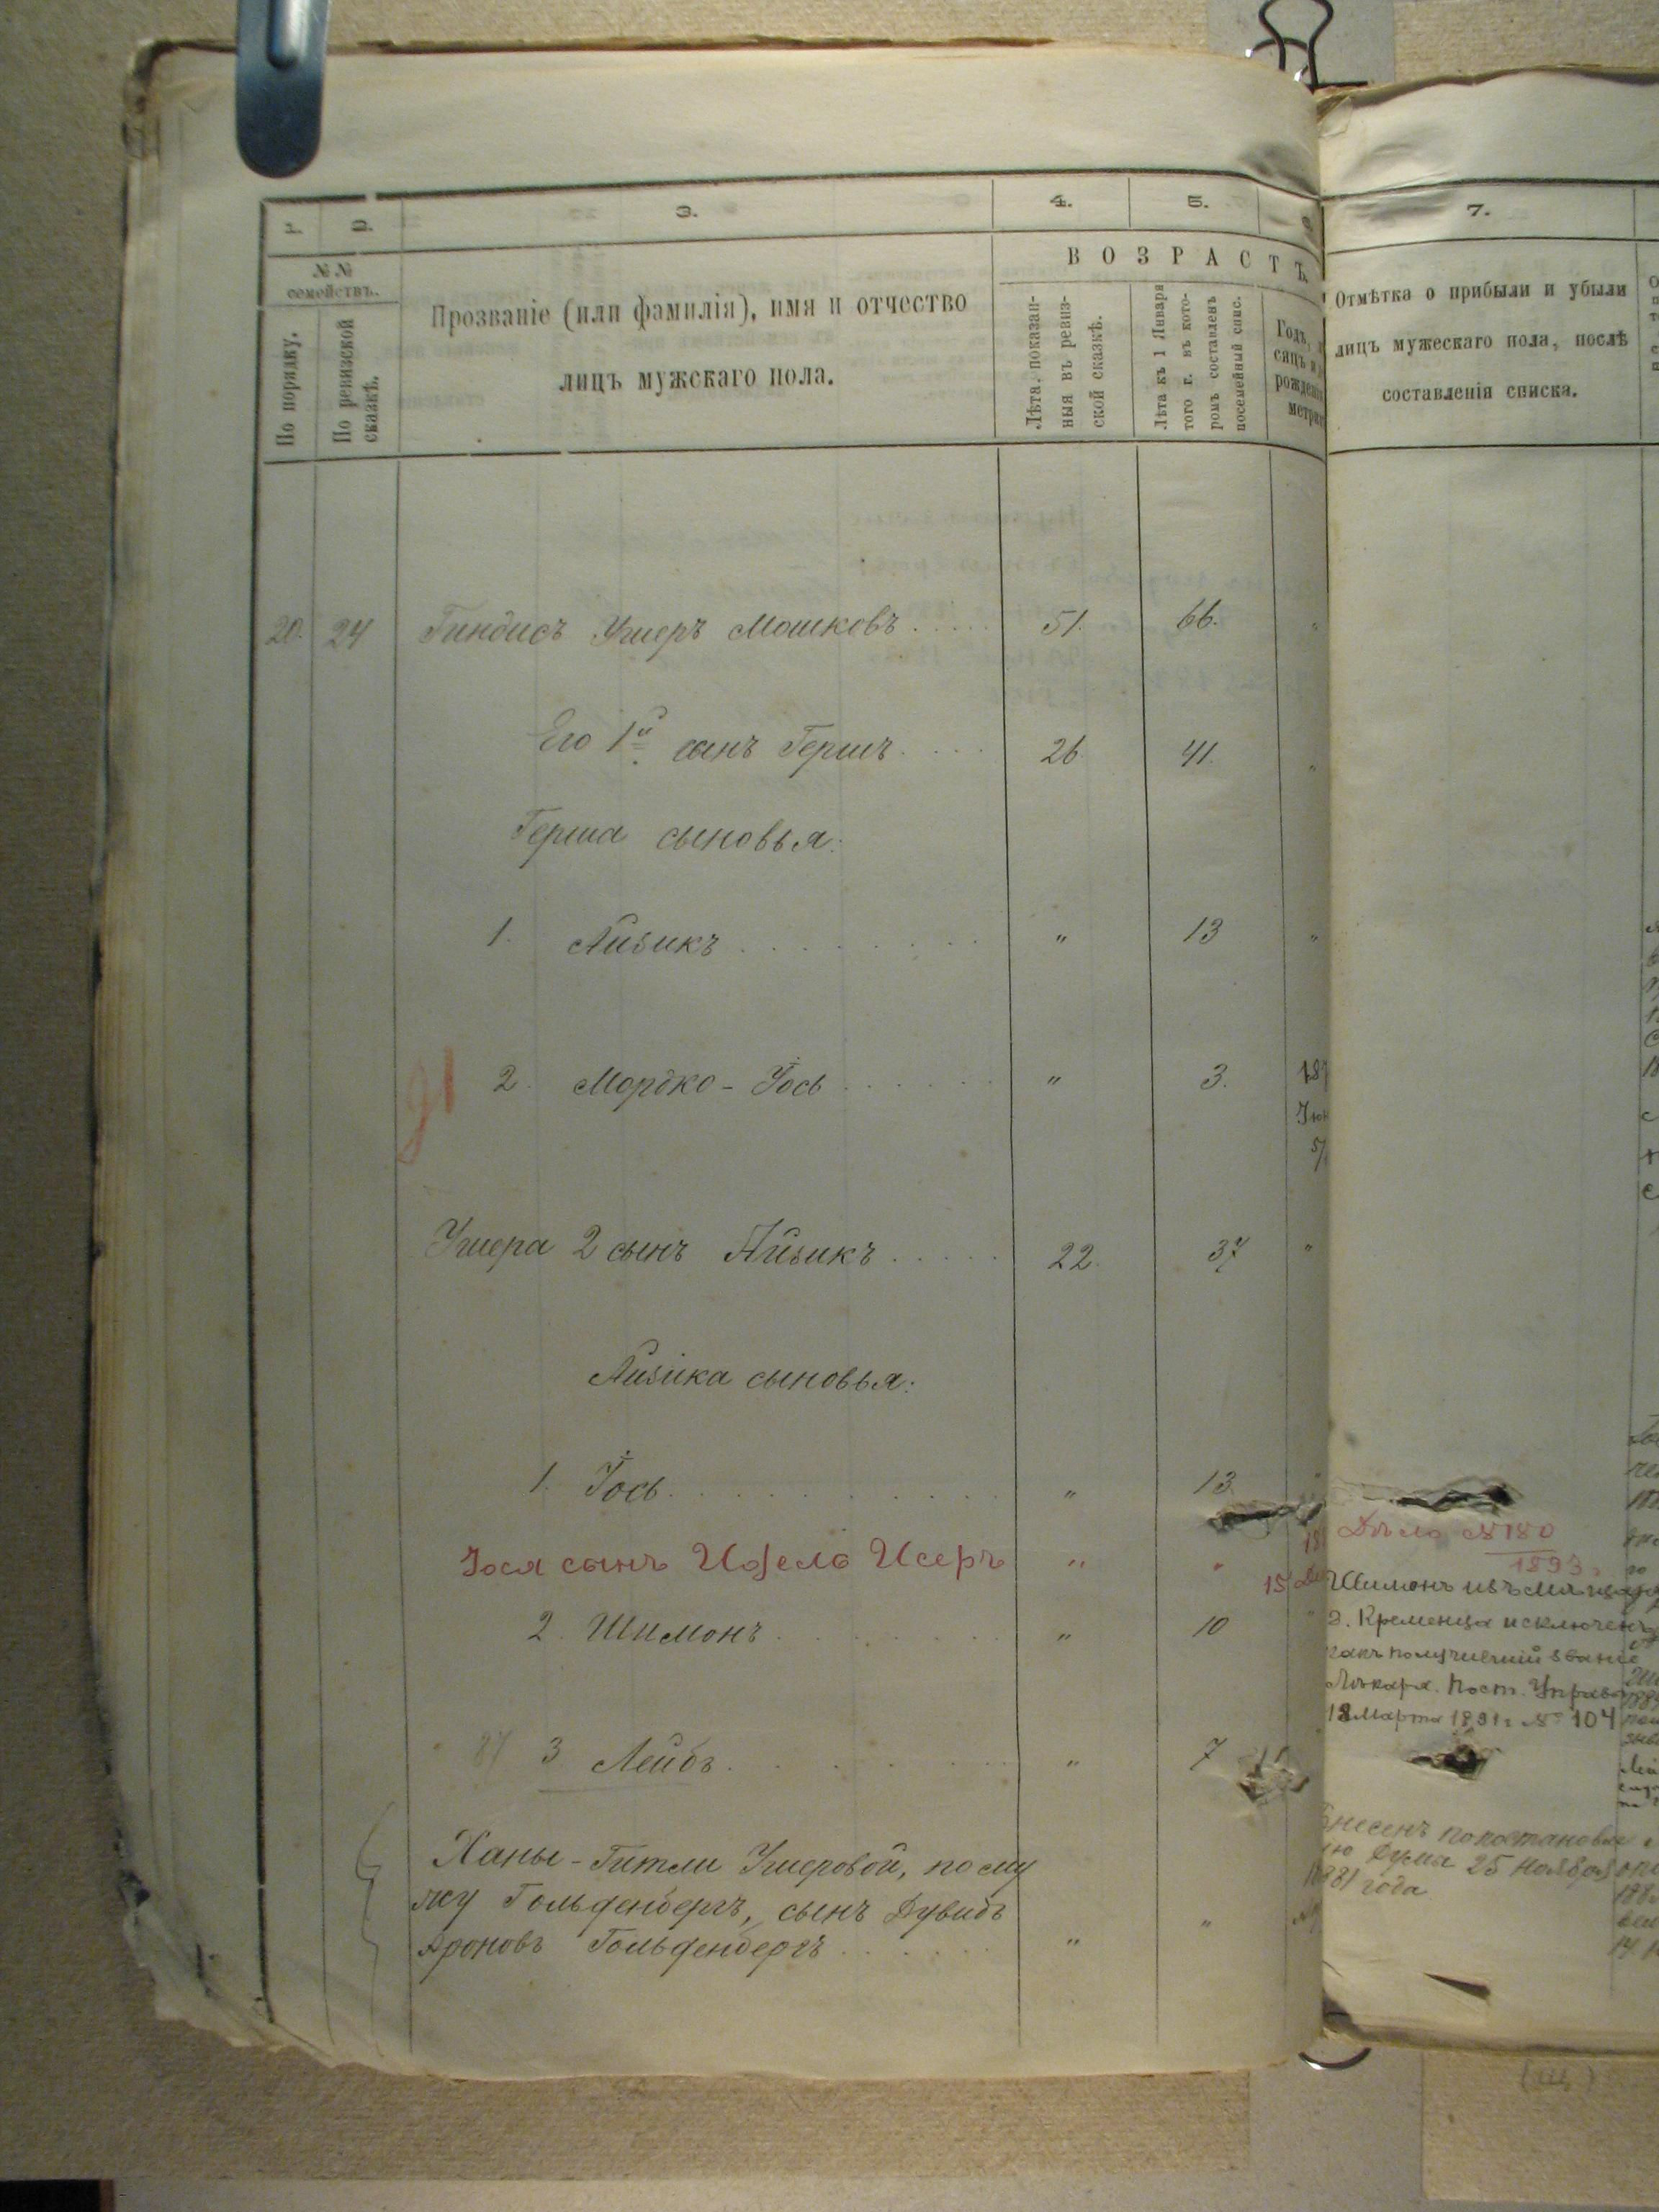 1. 2. 3. 4. 5. 7.
№№ семействъ.
По порядку.
По ревизской сказкѣ.
Прозваніе (или фамилія), имя и отчество
лицъ мужскаго пола.
ВОЗРАСТЪ.
Лѣта, показанныя въ ревизской сказкѣ.
Лѣта къ 1 Января того г. въ которомъ составленъ посемейный спис.
Годъ,
Отмѣтка о прибыли и убыли
лицъ мужескаго пола, послѣ
составленія списка.
20. 24 Гиндисъ Ушеръ Мошковъ 51. 66.
Его 1й сынъ Гершъ 26. 41.
Герша сыновья:
1. Айзикъ " 13 "
21
2. Мордко-Іось " 3. 187
Іюн
5/
Ушера 2 сынъ Айзикъ 22. 37 "
Айзика сыновья:
1. Іось " 13
Іося сынъ Исеръ " "
2. Шимонъ " 10
87 3 Лейбъ " 7
Ханы-Гитли Ушеровой, по му
жу Гольденбергъ, сынъ Дувидъ
Ароновъ Гольденбергъ " "
Дѣло №180
1893 г
Шимонъ изъ мѣщанъ
г. Кременца исключенъ
какъ получившій званіе
Лѣкаря. Пост. Управы
18 Марта 1891 г № 104
Внесенъ по постановле
ію Думы 25 Ноября
1881 года